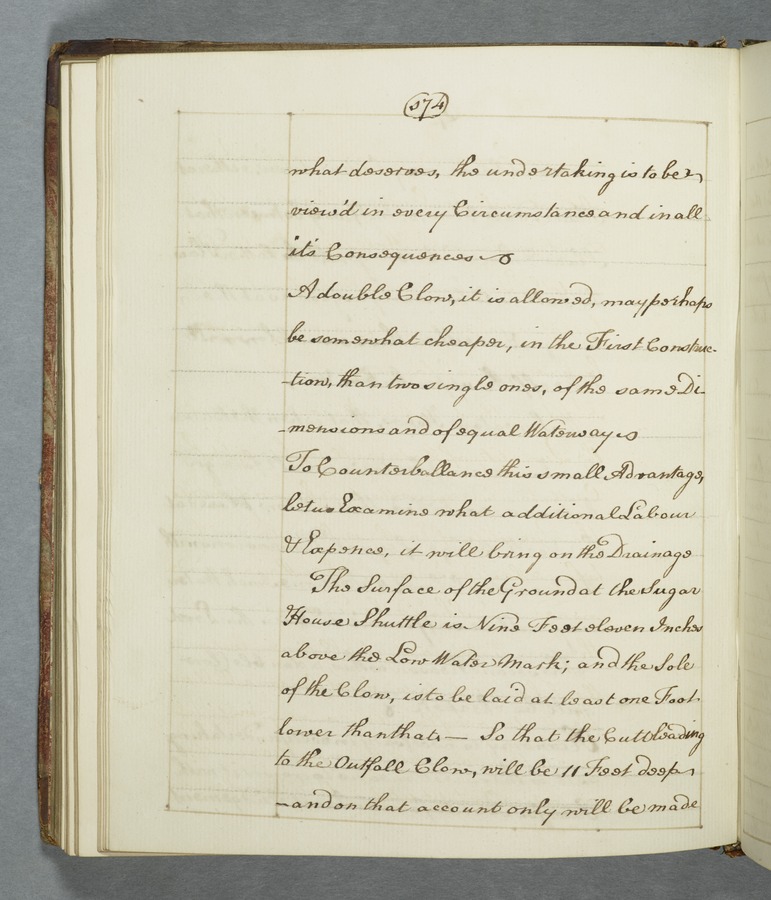 174
what deserves, the undertaking is to be
view'd in every Circumstance and in all
it's Consequences
A double Clow, it is allowed, may perhaps
be somewhat cheaper, in the First Construc-
-tion, than two single ones, of the same Di-
-mensions and of equal Waterways
To Counterballance this small Advantage,
let us Examine what additional Labour
& Expence, it will bring on the Drainage
The Surface of the Ground at the Sugar
House Shuttle is Nine Feet eleven Inches
above the Low Water Mark; and the Sole
of the Clow, is to be laid at least one Foot
lower than that, — So that the Cutt leading
to the Outfall Clow, will be 11 Feet deep,
-and on that account only will be made